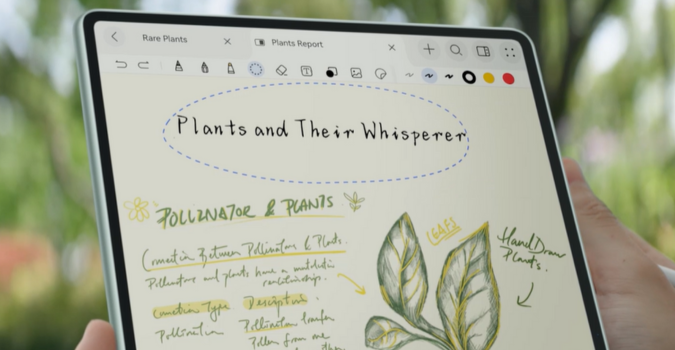 Rare Plants
Plants Report
Plants and Their Whisperer
POLLINATOR & PLANTS
Connection Between Pollinators & Plants.
Pollinators and plants have a
relationship.
Connection Type Description.
Pollination Pollinators transfer
Pollen from one
LEAFS
Hand Draw
Plants.